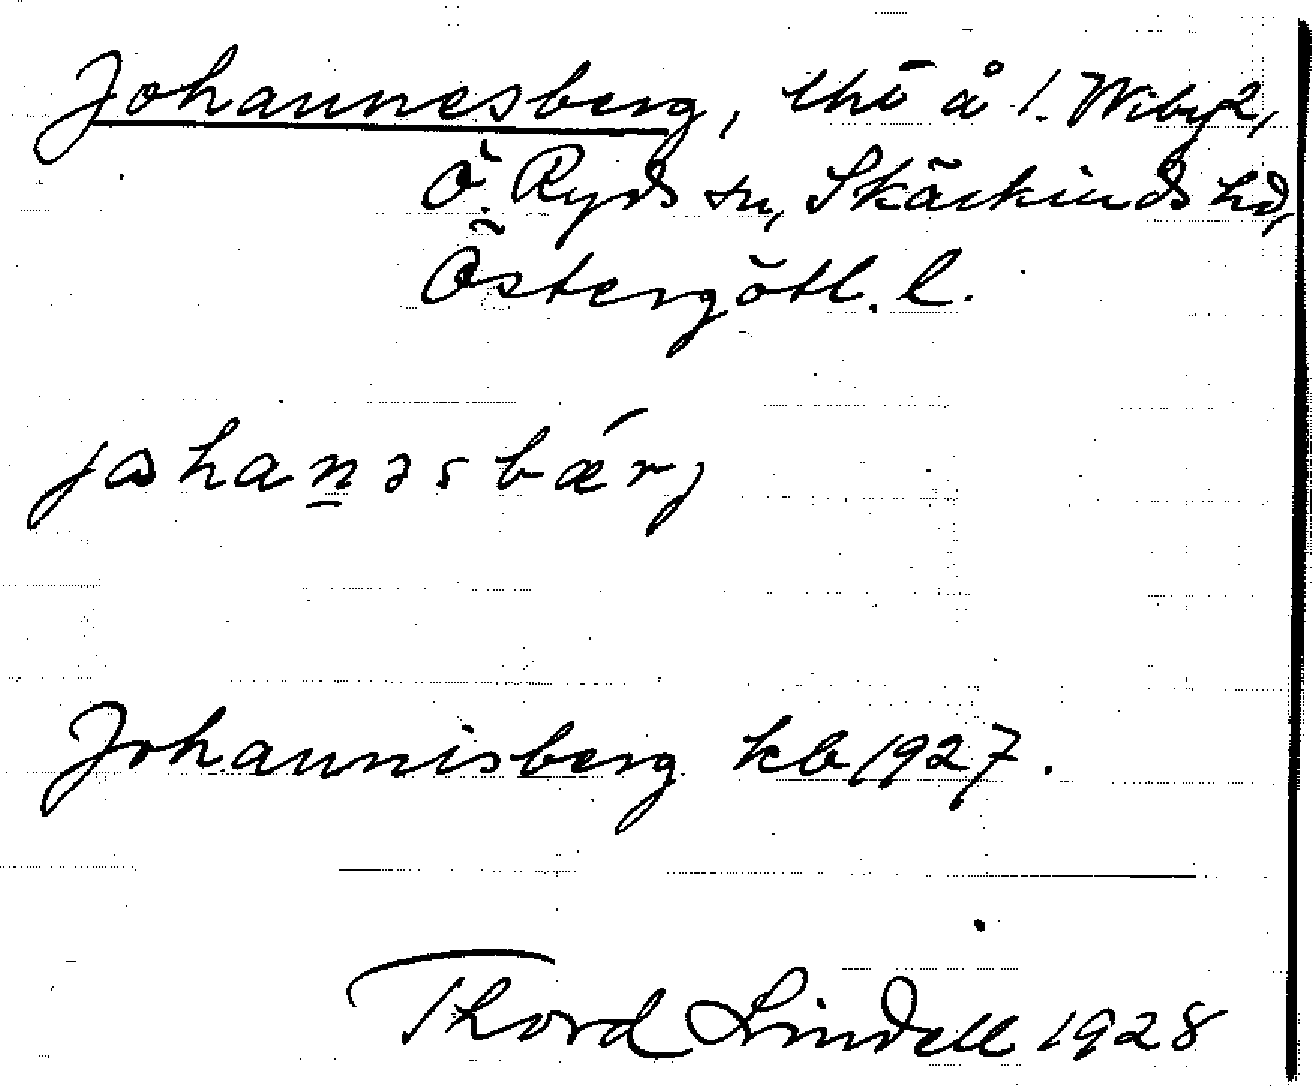 Johannesberg, thö å 1. Wiby 2,
Ö. Ryds sn, Skärkinds hd,
Östergötl. l.
johanəsbærj
Johannisberg kb 1927.
Thord Lindell 1928